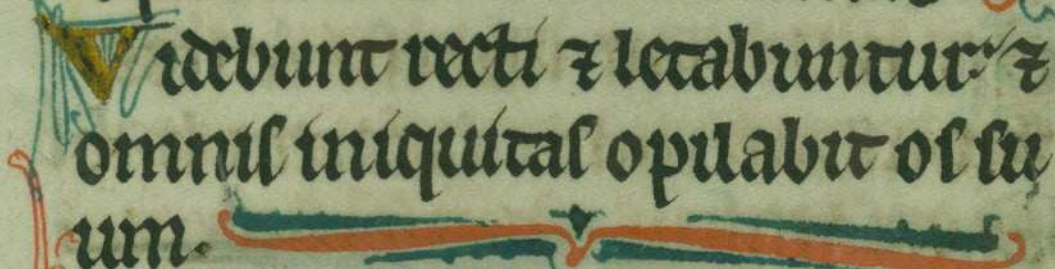 Videbunt recti ⁊ letabuntur: ⁊
omnis iniquitas opilabit os su
um.